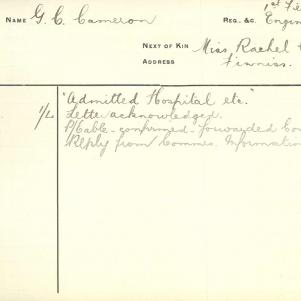 NAME G. C. Cameron
REG. &C. 1st Fie
Engin
NEXT OF KIN Miss Rachel
ADDRESS
"Admitted Hospital etc."
1/L Letter acknowledged.
P/Cable - confirmed - forwarded
Reply from Commdt. Information